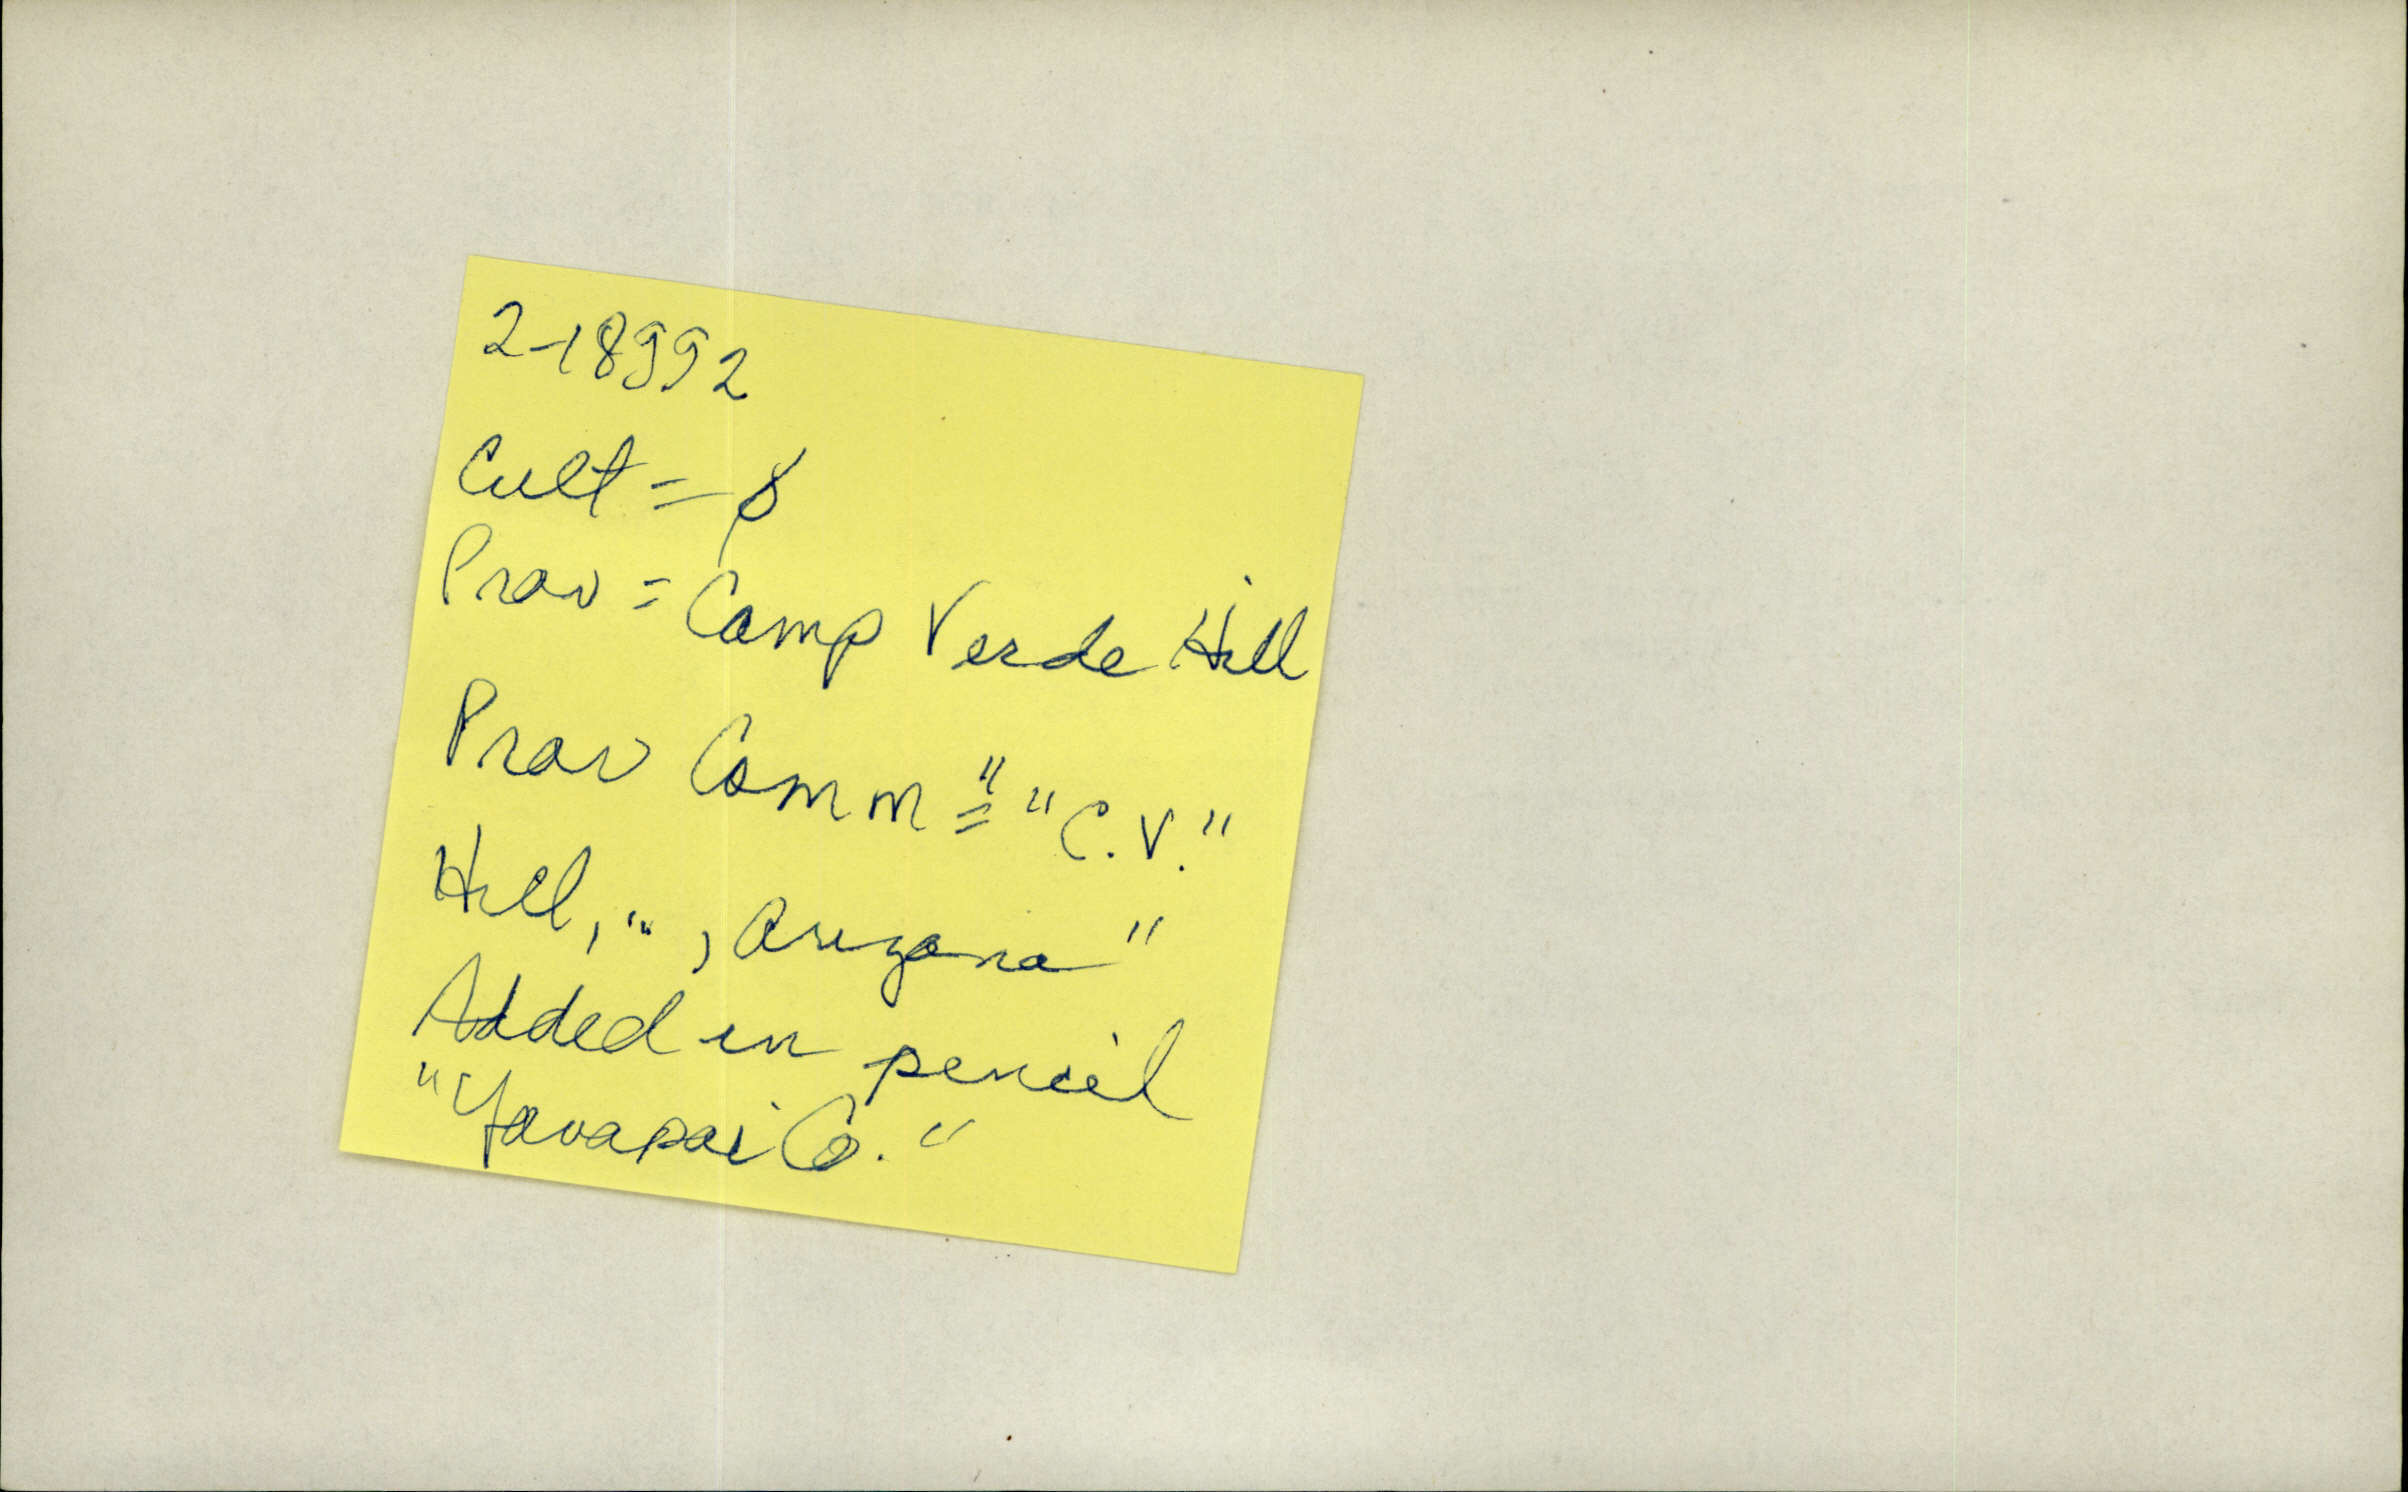 2-18992
Cult = ø
Prov = Camp Verde Hill
Prov Comm = " "C.V."
Hill, "" , Arizona"
Added in pencil
"Yavapai Co."